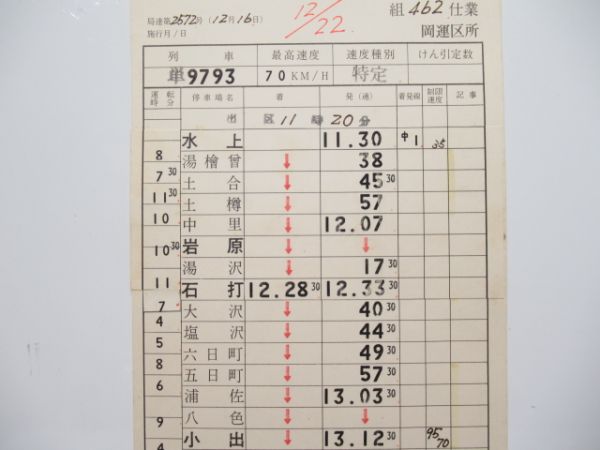 局達第2572号 (12月16日)
施行 月/日
12/22
組462仕業
岡運区所
列車 最高速度 速度種別 けん引定数
単9793 70KM/H 特定
運転時分 停車場名 着 発(通) 着発線 制限速度 記事
出区 11時20分
水上 11.30 中1 35
8
湯檜曽 ↓ 38
7 30
土合 ↓ 45 30
11 30
土樽 ↓ 57
10
中里 ↓ 12.07
岩原 ↓ ↓
10 30
湯沢 ↓ 17 30
11
石打 12.28 30 12.33 30
7
大沢 ↓ 40 30
4
塩沢 ↓ 44 30
5
六日町 ↓ 49 30
8
五日町 ↓ 57 30
6
浦佐 ↓ 13.03 30
八色 ↓ ↓
9
小出 ↓ 13.12 30 95 70
4